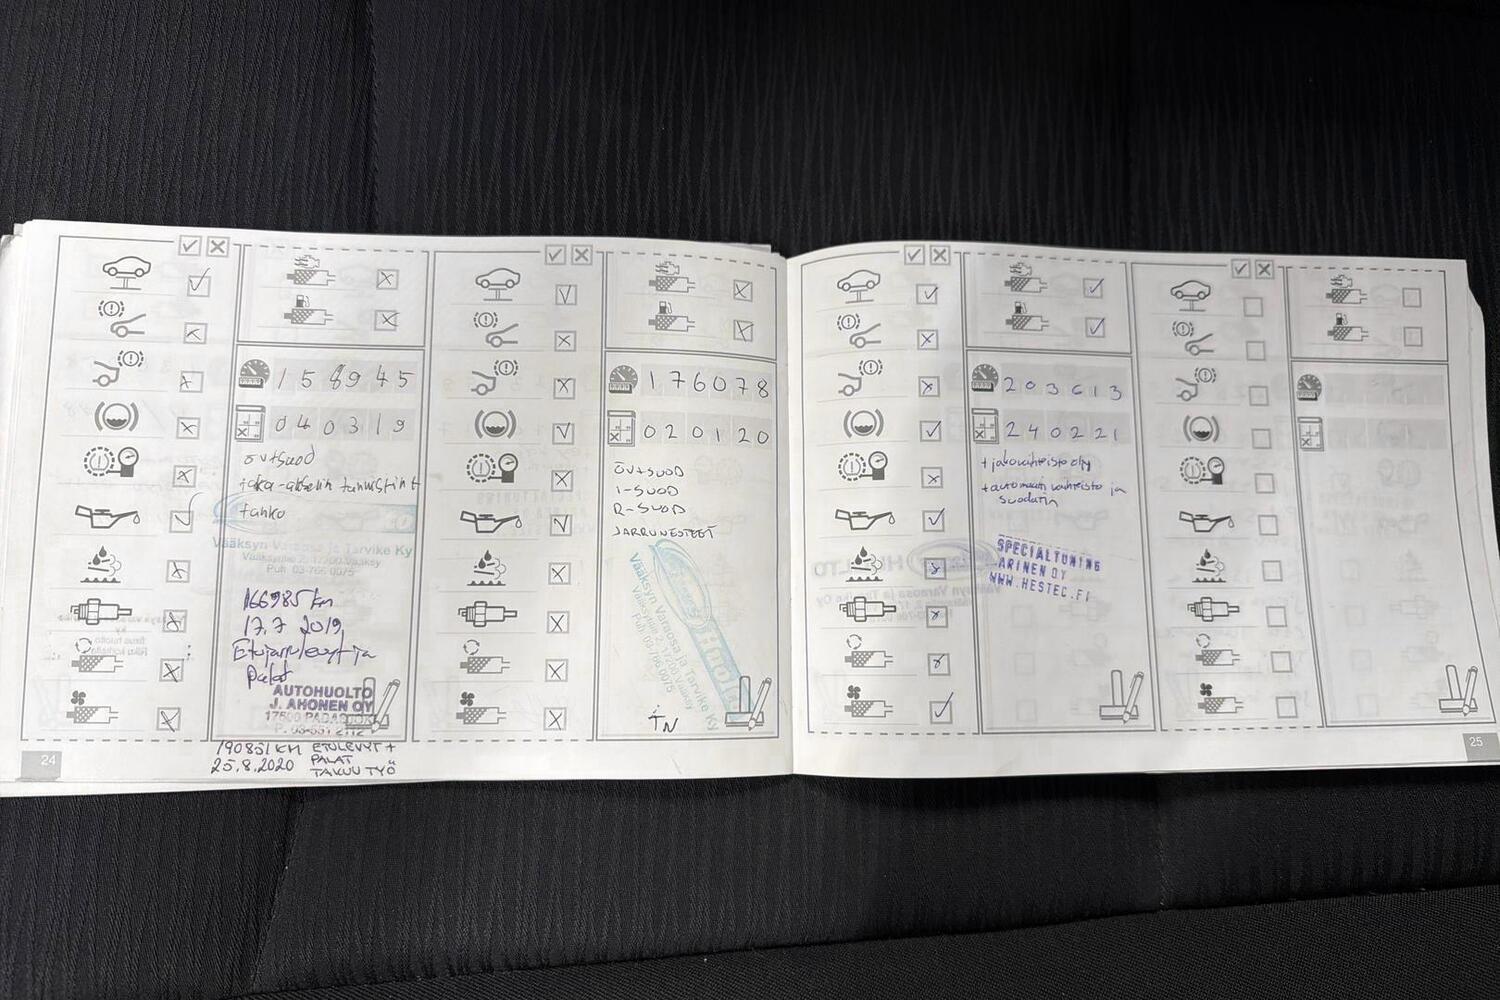 158945
040319
öv+suod
taka-akselin tunnistint
tanko
Vääksyn Varaosa ja Tarvike Ky
Vääksyntie 2, 17200 Vääksy
Puh. 03-766 0075
166985 km
17.7 2019
Etujarrulevyt ja
Palat
AUTOHUOLTO
J. AHONEN OY
17500 PADASJOKI
P. 03-551 2112
190851 KM ETULEVYT +
25.8.2020 PALAT
TAKUU TYÖ
24
176078
020120
ÖV+SUOD
I-SUOD
R-SUOD
JARRUNESTEET
Vääksyn Varaosa ja Tarvike Ky
Vääksyntie 2, 17200 Vääksy
Puh. 03-766 0075
TN
203613
240221
+ jakovaihteisto öljy
+ automaatti vaihteisto ja
suodatin
SPECIALTUNING
ARINEN OY
WWW.HESTEC.FI
25